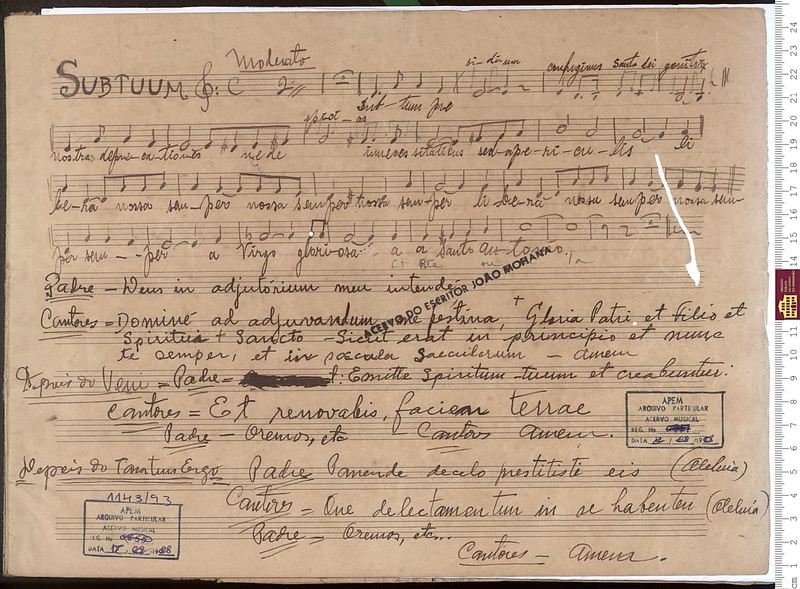 Moderato
SUBTUUM C
si-di-um confugimus Santa Dei genitrix
Sub-tum pre
nostras depre-ca-tiones ne de
sed-a-pe-ri-cu-lis li
be-ra nossa sem-per nossa semper nossa sem-per li-be-ra nossa semper nossa sem-
per sem--per a Virgo gloriosa a a Santo An-tonio
Padre - Deus in adjutórium meu intende
Cantores = Dominé ad adjuvandum me festina, + Gloria Patri et Filio et
Spiritui + Sancto - Sicut erat in principio et nunc
te semper, et in sæcula saeculorum - amem
Depois do Veni = Padre = t: Emitte Spiritum tuum et creabuntur.
Cantores = Et renovabis, faciem terrae
Padre - Oremos, etc Cantors Amem.
Depois do Tantum Ergo Padre Panende decelo prestitiste eis (Aleluia)
Cantores = One delectamentum in se habentem (Aleluia)
Padre - Oremos, etc...
Cantores - Amem.
ACERVO DO ESCRITOR JOÃO MOHANA
APEM
ARQUIVO PARTICULAR
ACERVO MUSICAL
REG. No
DATA
1143/93
APEM
ARQUIVO PARTICULAR
ACERVO MUSICAL
REG. No
DATA
cm 1 2 3 4 5 6 7 8 9 10 11 12 13 14 15 16 17 18 19 20 21 22 23 24